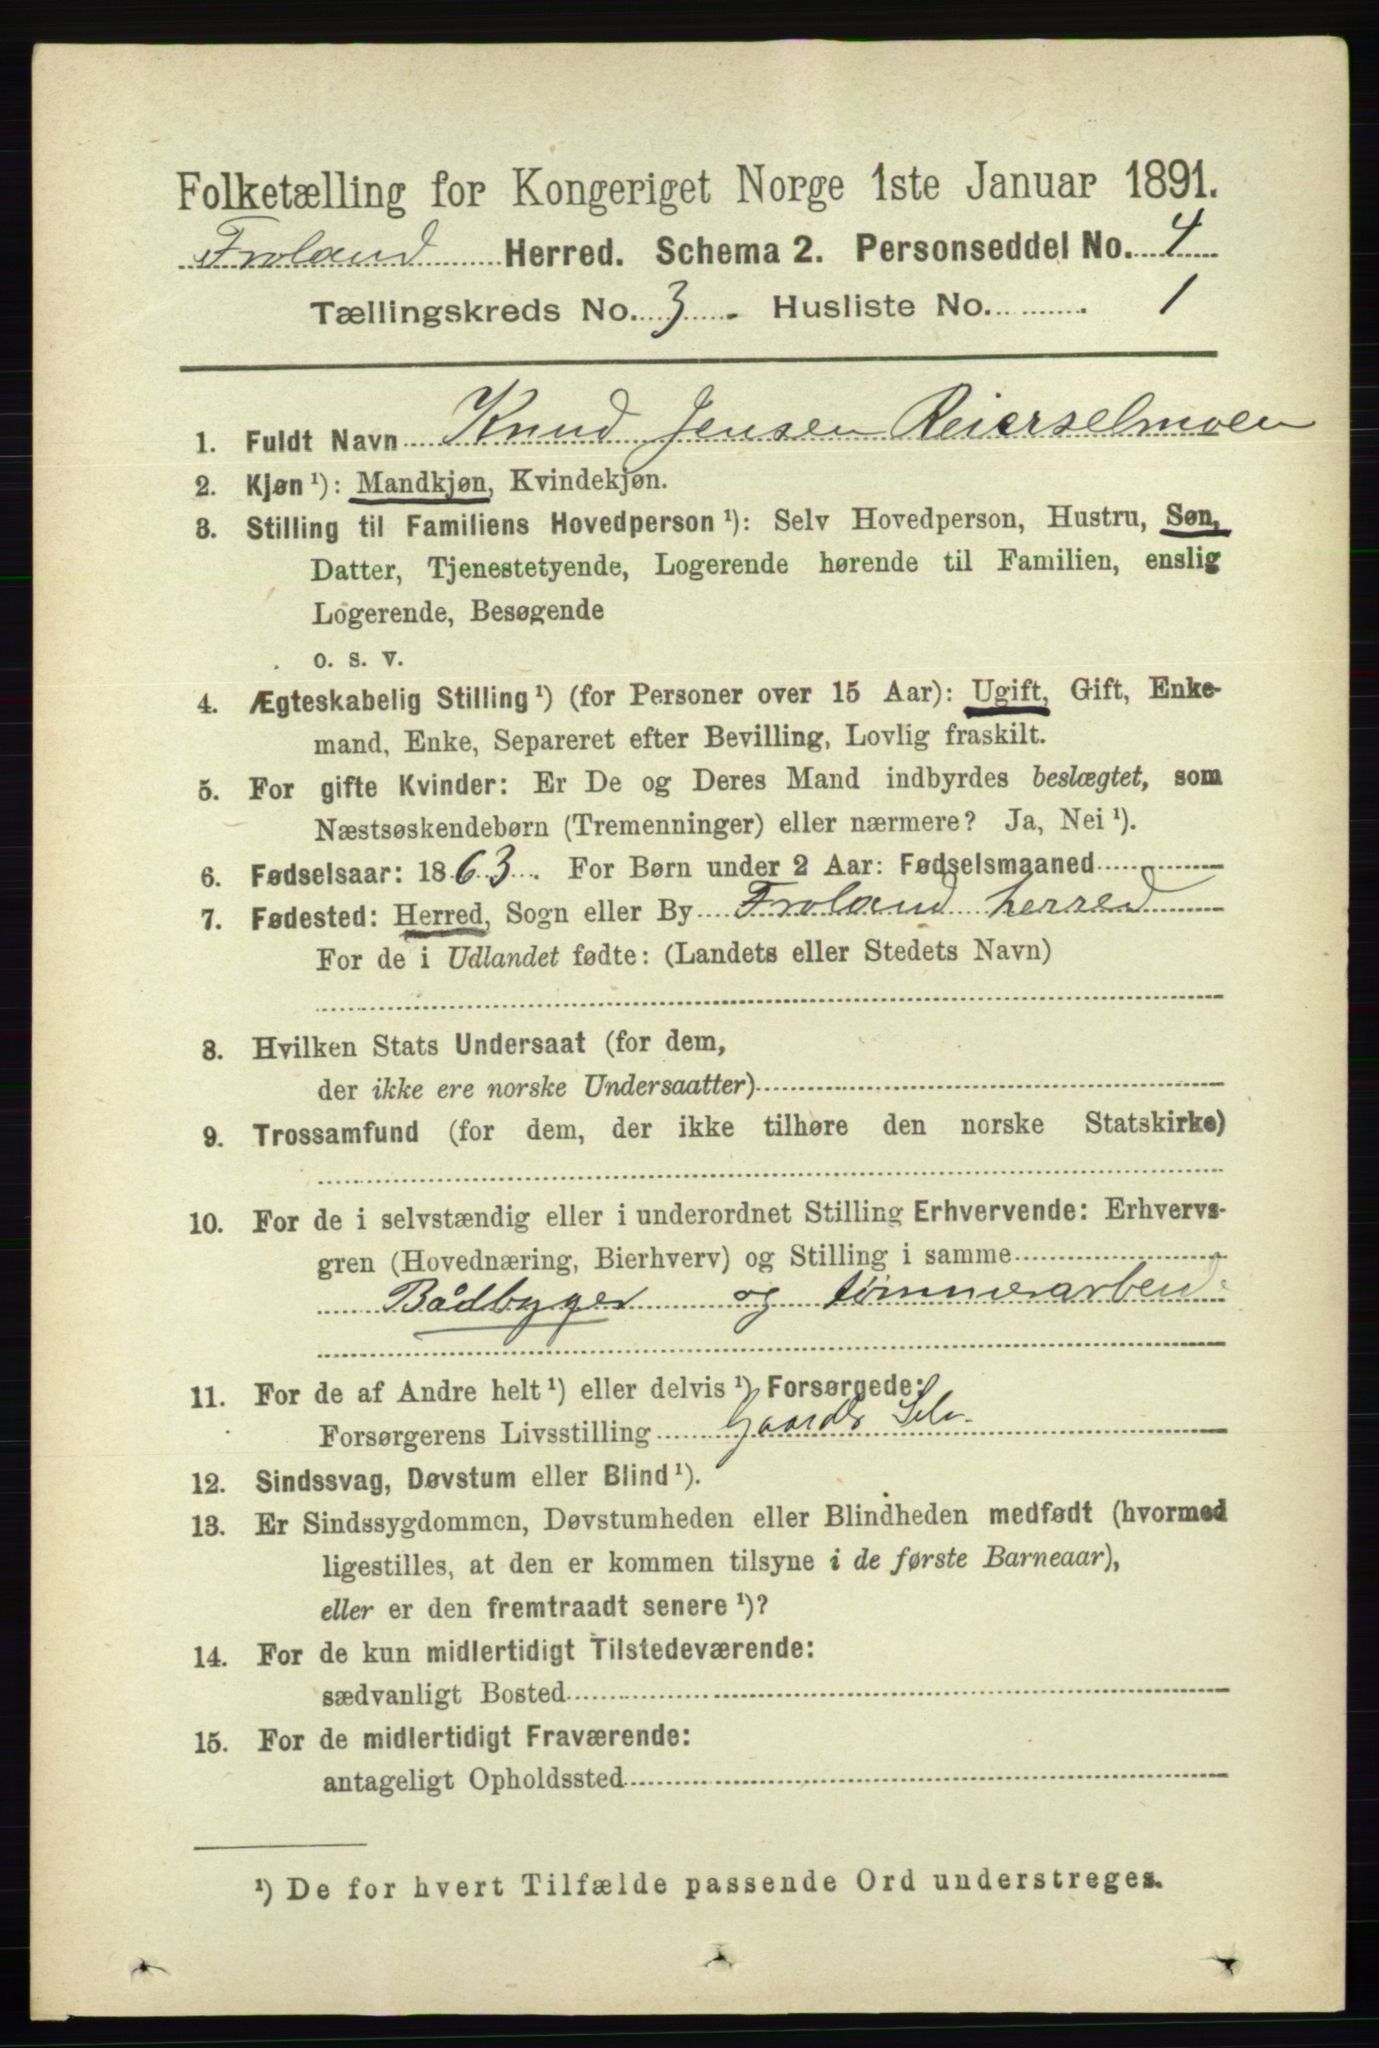 Folketælling for Kongeriget Norge 1ste Januar 1891.
Froland Herred. Schema 2. Personseddel No. 4
Tællingskreds No. 3. Husliste No. 1
1. Fuldt Navn Knud Jensen Reierselmoen
2. Kjøn ¹): Mandkjøn, Kvindekjøn.
3. Stilling til Familiens Hovedperson ¹): Selv Hovedperson, Hustru, Søn,
Datter, Tjenestetyende, Logerende hørende til Familien, enslig
Logerende, Besøgende
o. s. v.
4. Ægteskabelig Stilling ¹) (for Personer over 15 Aar): Ugift, Gift, Enke-
mand, Enke, Separeret efter Bevilling, Lovlig fraskilt.
5. For gifte Kvinder: Er De og Deres Mand indbyrdes beslægtet, som
Næstsøskendebørn (Tremenninger) eller nærmere? Ja, Nei ¹).
6. Fødselsaar: 1863. For Børn under 2 Aar: Fødselsmaaned
7. Fødested: Herred, Sogn eller By Froland herred
For de i Udlandet fødte: (Landets eller Stedets Navn)
8. Hvilken Stats Undersaat (for dem,
der ikke ere norske Undersaatter)
9. Trossamfund (for dem, der ikke tilhøre den norske Statskirke)
10. For de i selvstændig eller i underordnet Stilling Erhvervende: Erhvervs-
gren (Hovednæring, Bierhverv) og Stilling i samme
Bådbyger og tømmerarbeid
11. For de af Andre helt ¹) eller delvis ¹) Forsørgede:
Forsørgerens Livsstilling Gaardb
12. Sindssvag, Døvstum eller Blind ¹).
13. Er Sindssygdommen, Døvstumheden eller Blindheden medfødt (hvormed
ligestilles, at den er kommen tilsyne i de første Barneaar),
eller er den fremtraadt senere ¹)?
14. For de kun midlertidigt Tilstedeværende:
sædvanligt Bosted
15. For de midlertidigt Fraværende:
antageligt Opholdssted
¹) De for hvert Tilfælde passende Ord understreges.